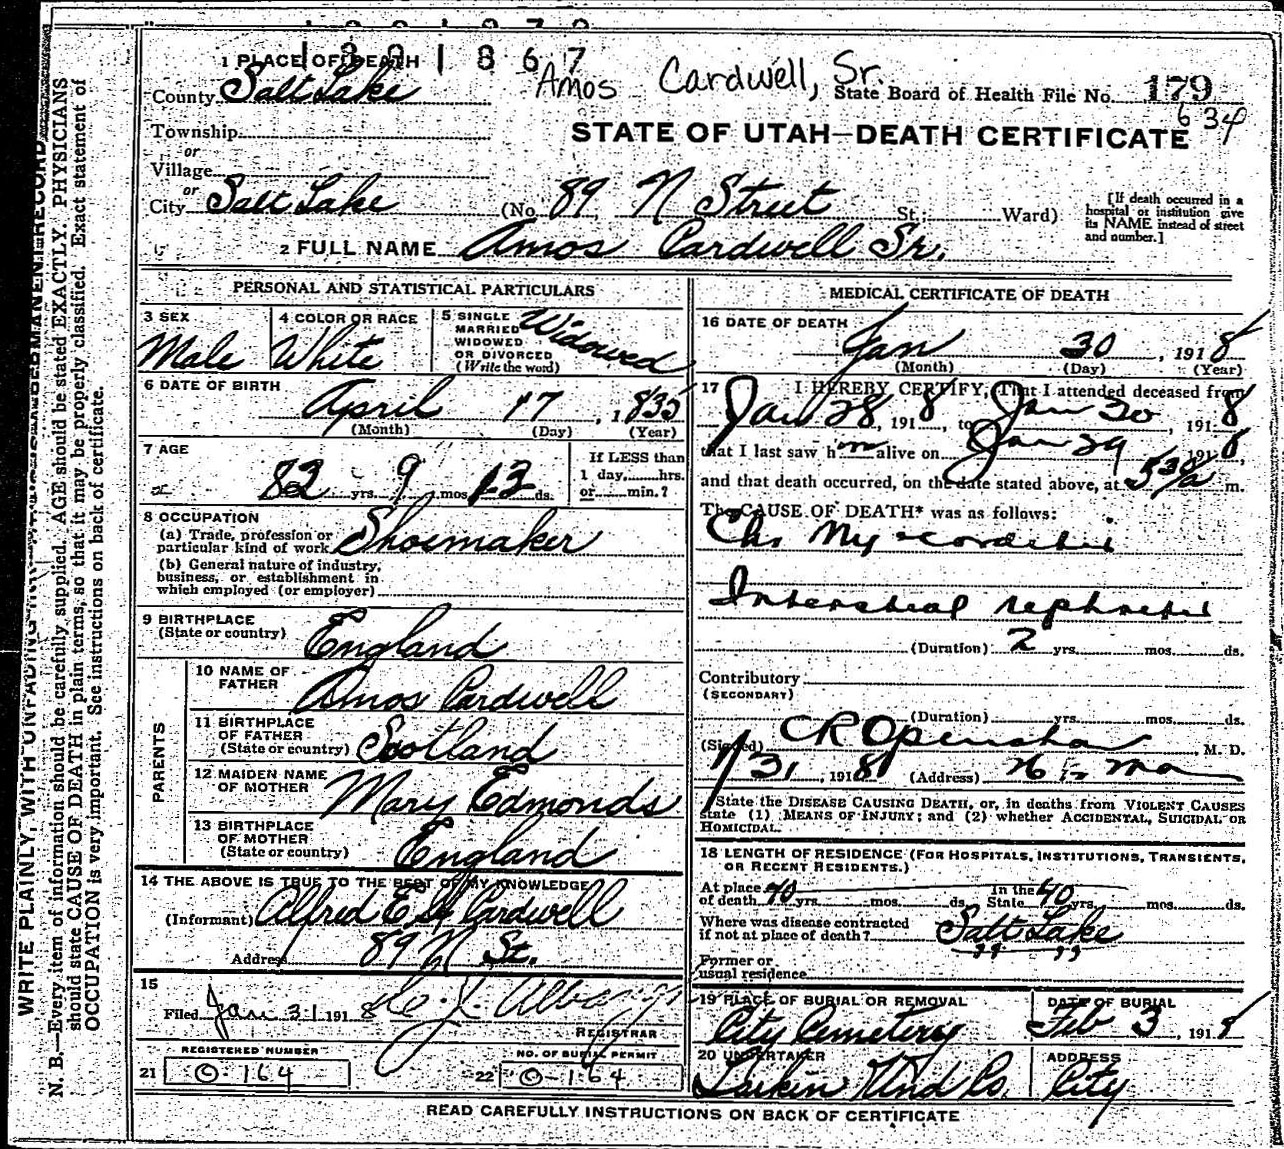 1 3 0 1 8 6 7
Amos Cardwell, Sr.
1 PLACE OF DEATH
County Salt Lake
State Board of Health File No. 179
634
Township
or
Village
or
City Salt Lake
STATE OF UTAH—DEATH CERTIFICATE
(No. 89 N Street St.; Ward)
[If death occurred in a
hospital or institution give
its NAME instead of street
and number.]
2 FULL NAME Amos Cardwell Sr.
PERSONAL AND STATISTICAL PARTICULARS
3 SEX
Male
4 COLOR OR RACE
White
5 SINGLE
MARRIED
WIDOWED
OR DIVORCED
(Write the word)
Widowed
6 DATE OF BIRTH
April 17, 1835
(Month) (Day) (Year)
7 AGE
82 yrs. 9 mos. 13 ds.
If LESS than
1 day, hrs.
or min.?
8 OCCUPATION
(a) Trade, profession or
particular kind of work Shoemaker
(b) General nature of industry,
business, or establishment in
which employed (or employer)
9 BIRTHPLACE
(State or country) England
PARENTS
10 NAME OF
FATHER Amos Cardwell
11 BIRTHPLACE
OF FATHER
(State or country) Scotland
12 MAIDEN NAME
OF MOTHER Mary Edmonds
13 BIRTHPLACE
OF MOTHER
(State or country) England
14 THE ABOVE IS TRUE TO THE BEST OF MY KNOWLEDGE
(Informant) Alfred E Cardwell
Address 89 N St.
15
Filed Jan 31 1918
REGISTRAR
REGISTERED NUMBER
21 0-164
NO. OF BURIAL PERMIT
22 0-164
MEDICAL CERTIFICATE OF DEATH
16 DATE OF DEATH
Jan 30, 1918
(Month) (Day) (Year)
17 I HEREBY CERTIFY, That I attended deceased from
Jan 28, 1918, to Jan 30, 1918
that I last saw h m alive on Jan 29 1918,
and that death occurred, on the date stated above, at 530 a m.
The CAUSE OF DEATH* was as follows:
Chr Myocarditis
Interstitial nephritis
(Duration) 2 yrs. mos. ds.
Contributory
(SECONDARY)
(Duration) yrs. mos. ds.
(Signed) C R Openshaw, M. D.
1/31, 1918 (Address)
State the DISEASE CAUSING DEATH, or, in deaths from VIOLENT CAUSES
state (1) MEANS OF INJURY; and (2) whether ACCIDENTAL, SUICIDAL OR
HOMICIDAL.
18 LENGTH OF RESIDENCE (FOR HOSPITALS, INSTITUTIONS, TRANSIENTS,
OR RECENT RESIDENTS.)
At place
of death 40 yrs. mos. ds.
In the
State 40 yrs. mos. ds.
Where was disease contracted
if not at place of death? Salt Lake
Former or
usual residence " "
19 PLACE OF BURIAL OR REMOVAL
City Cemetery
DATE OF BURIAL
Feb 3, 1918
20 UNDERTAKER
Larkin Und Co.
ADDRESS
City
READ CAREFULLY INSTRUCTIONS ON BACK OF CERTIFICATE
WRITE PLAINLY, WITH UNFADING
N. B.—Every item of information should be carefully supplied. AGE should be stated EXACTLY. PHYSICIANS
should state CAUSE OF DEATH in plain terms, so that it may be properly classified. Exact statement of
OCCUPATION is very important. See instructions on back of certificate.